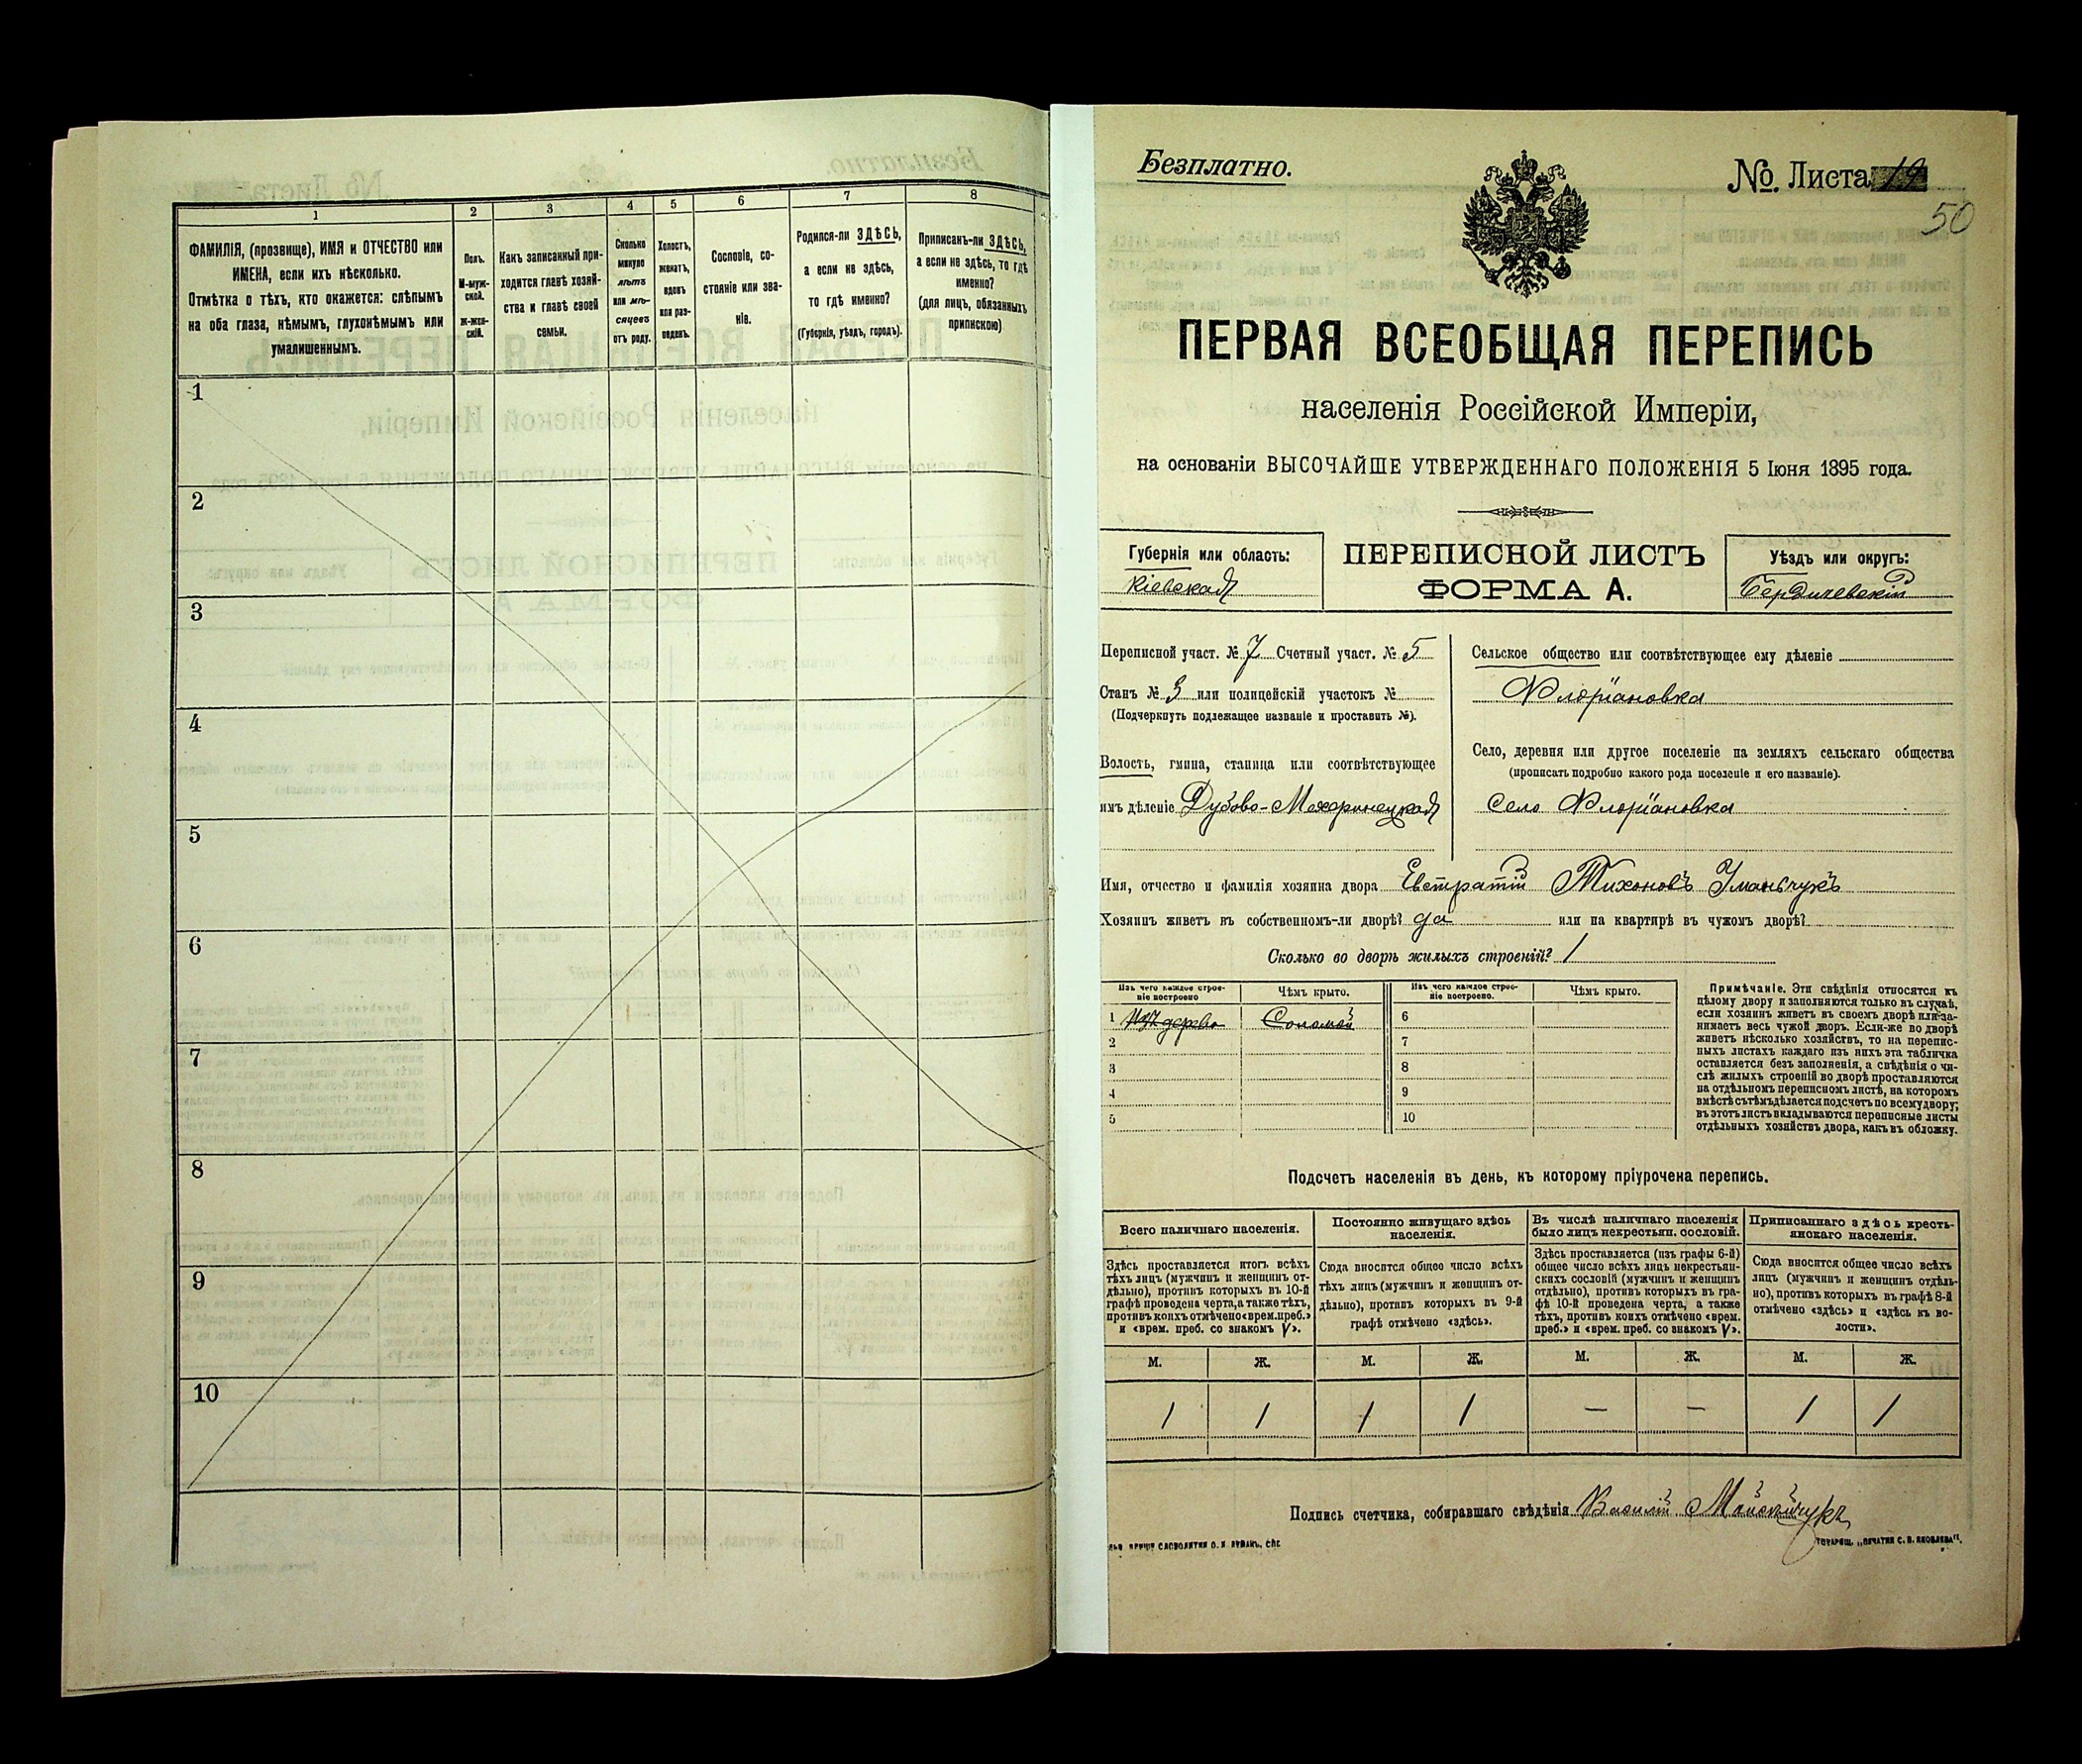 1
2
3
4
5
6
7
8
ФАМИЛІЯ, (прозвище), ИМЯ и ОТЧЕСТВО или
ИМЕНА, если ихъ нѣсколько.
Отмѣтка о тѣхъ, кто окажется: слѣпымъ
на оба глаза, нѣмымъ, глухонѣмымъ или
умалишеннымъ.
Полъ.
М-муж-
ской.
Ж-жен-
скій.
Какъ записанный при-
ходится главѣ хозяй-
ства и главѣ своей
семьи.
Сколько
минуло
лѣтъ
или мѣ-
сяцевъ
отъ роду.
Холостъ,
женатъ,
вдовъ
или раз-
веденъ.
Сословіе, со-
стояніе или зва-
ніе.
Родился-ли ЗДѢСЬ,
а если не здѣсь,
то гдѣ именно?
(Губернія, уѣздъ, городъ).
Приписанъ-ли ЗДѢСЬ,
а если не здѣсь, то гдѣ
именно?
(для лицъ, обязанныхъ
припискою)
1
2
3
4
5
6
7
8
9
10
Безплатно.
№. Листа 19
50
ПЕРВАЯ ВСЕОБЩАЯ ПЕРЕПИСЬ
населенія Россійской Имперіи,
на основаніи ВЫСОЧАЙШЕ УТВЕРЖДЕННАГО ПОЛОЖЕНІЯ 5 Іюня 1895 года.
Губернія или область:
Кіевская
ПЕРЕПИСНОЙ ЛИСТЪ
ФОРМА А.
Уѣздъ или округъ:
Бердичевскій
Переписной участ. № 7 Счетный участ. № 5
Станъ № 3 или полицейскій участокъ №
(Подчеркнуть подлежащее названіе и проставить №).
Волость, гмина, станица или соотвѣтствующее
имъ дѣленіе Дубово-Махаринецкая
Сельское общество или соотвѣтствующее ему дѣленіе
Флоріановка
Село, деревня или другое поселеніе на земляхъ сельскаго общества
(прописать подробно какого рода поселеніе и его названіе).
Село Флоріановка
Имя, отчество и фамилія хозяина двора Евстратій Тихоновъ Уманчукъ
Хозяинъ живетъ въ собственномъ-ли дворѣ? да или на квартирѣ въ чужомъ дворѣ?
Сколько во дворѣ жилыхъ строеній? 1
Изъ чего каждое строе-
ніе построено
Чѣмъ крыто.
Изъ чего каждое строе-
ніе построено.
Чѣмъ крыто.
1 Изъ дерева Соломой 6
2 7
3 8
4 9
5 10
Примѣчаніе. Эти свѣдѣнія относятся къ
цѣлому двору и заполняются только въ случаѣ,
если хозяинъ живетъ въ своемъ дворѣ или за-
нимаетъ весь чужой дворъ. Если-же во дворѣ
живетъ нѣсколько хозяйствъ, то на перепис-
ныхъ листахъ каждаго изъ нихъ эта табличка
оставляется безъ заполненія, а свѣдѣнія о чи-
слѣ жилыхъ строеній во дворѣ проставляются
на отдѣльномъ переписномъ листѣ, на которомъ
вмѣстѣ съ тѣмъ дѣлается подсчетъ по всему двору;
въ этотъ листъ вкладываются переписные листы
отдѣльныхъ хозяйствъ двора, какъ въ обложку.
Подсчетъ населенія въ день, къ которому пріурочена перепись.
Всего наличнаго населенія.
Постоянно живущаго здѣсь
населенія.
Въ числѣ наличнаго населенія
было лицъ некрестьян. сословій.
Приписаннаго здѣсь кресть-
янскаго населенія.
Здѣсь проставляется итогъ всѣхъ
тѣхъ лицъ (мужчинъ и женщинъ от-
дѣльно), противъ которыхъ въ 10-й
графѣ проведена черта, а также тѣхъ,
противъ коихъ отмѣчено «врем. преб.»
и «врем. преб. со знакомъ V».
Сюда вносится общее число всѣхъ
тѣхъ лицъ (мужчинъ и женщинъ от-
дѣльно), противъ которыхъ въ 9-й
графѣ отмѣчено «здѣсь».
Здѣсь проставляется (изъ графы 6-й)
общее число всѣхъ лицъ некрестьян-
скихъ сословій (мужчинъ и женщинъ
отдѣльно), противъ которыхъ въ гра-
фѣ 10-й проведена черта, а также
тѣхъ, противъ коихъ отмѣчено «врем.
преб.» и «врем. преб. со знакомъ V».
Сюда вносится общее число всѣхъ
лицъ (мужчинъ и женщинъ отдѣль-
но), противъ которыхъ въ графѣ 8-й
отмѣчено «здѣсь» и «здѣсь къ во-
лости».
М. Ж. М. Ж. М. Ж. М. Ж.
1 1 1 1 — — 1 1
Подпись счетчика, собиравшаго свѣдѣнія Василій
ТОВАРИЩ. „ПЕЧАТНЯ С. П. ЯКОВЛЕВА“.